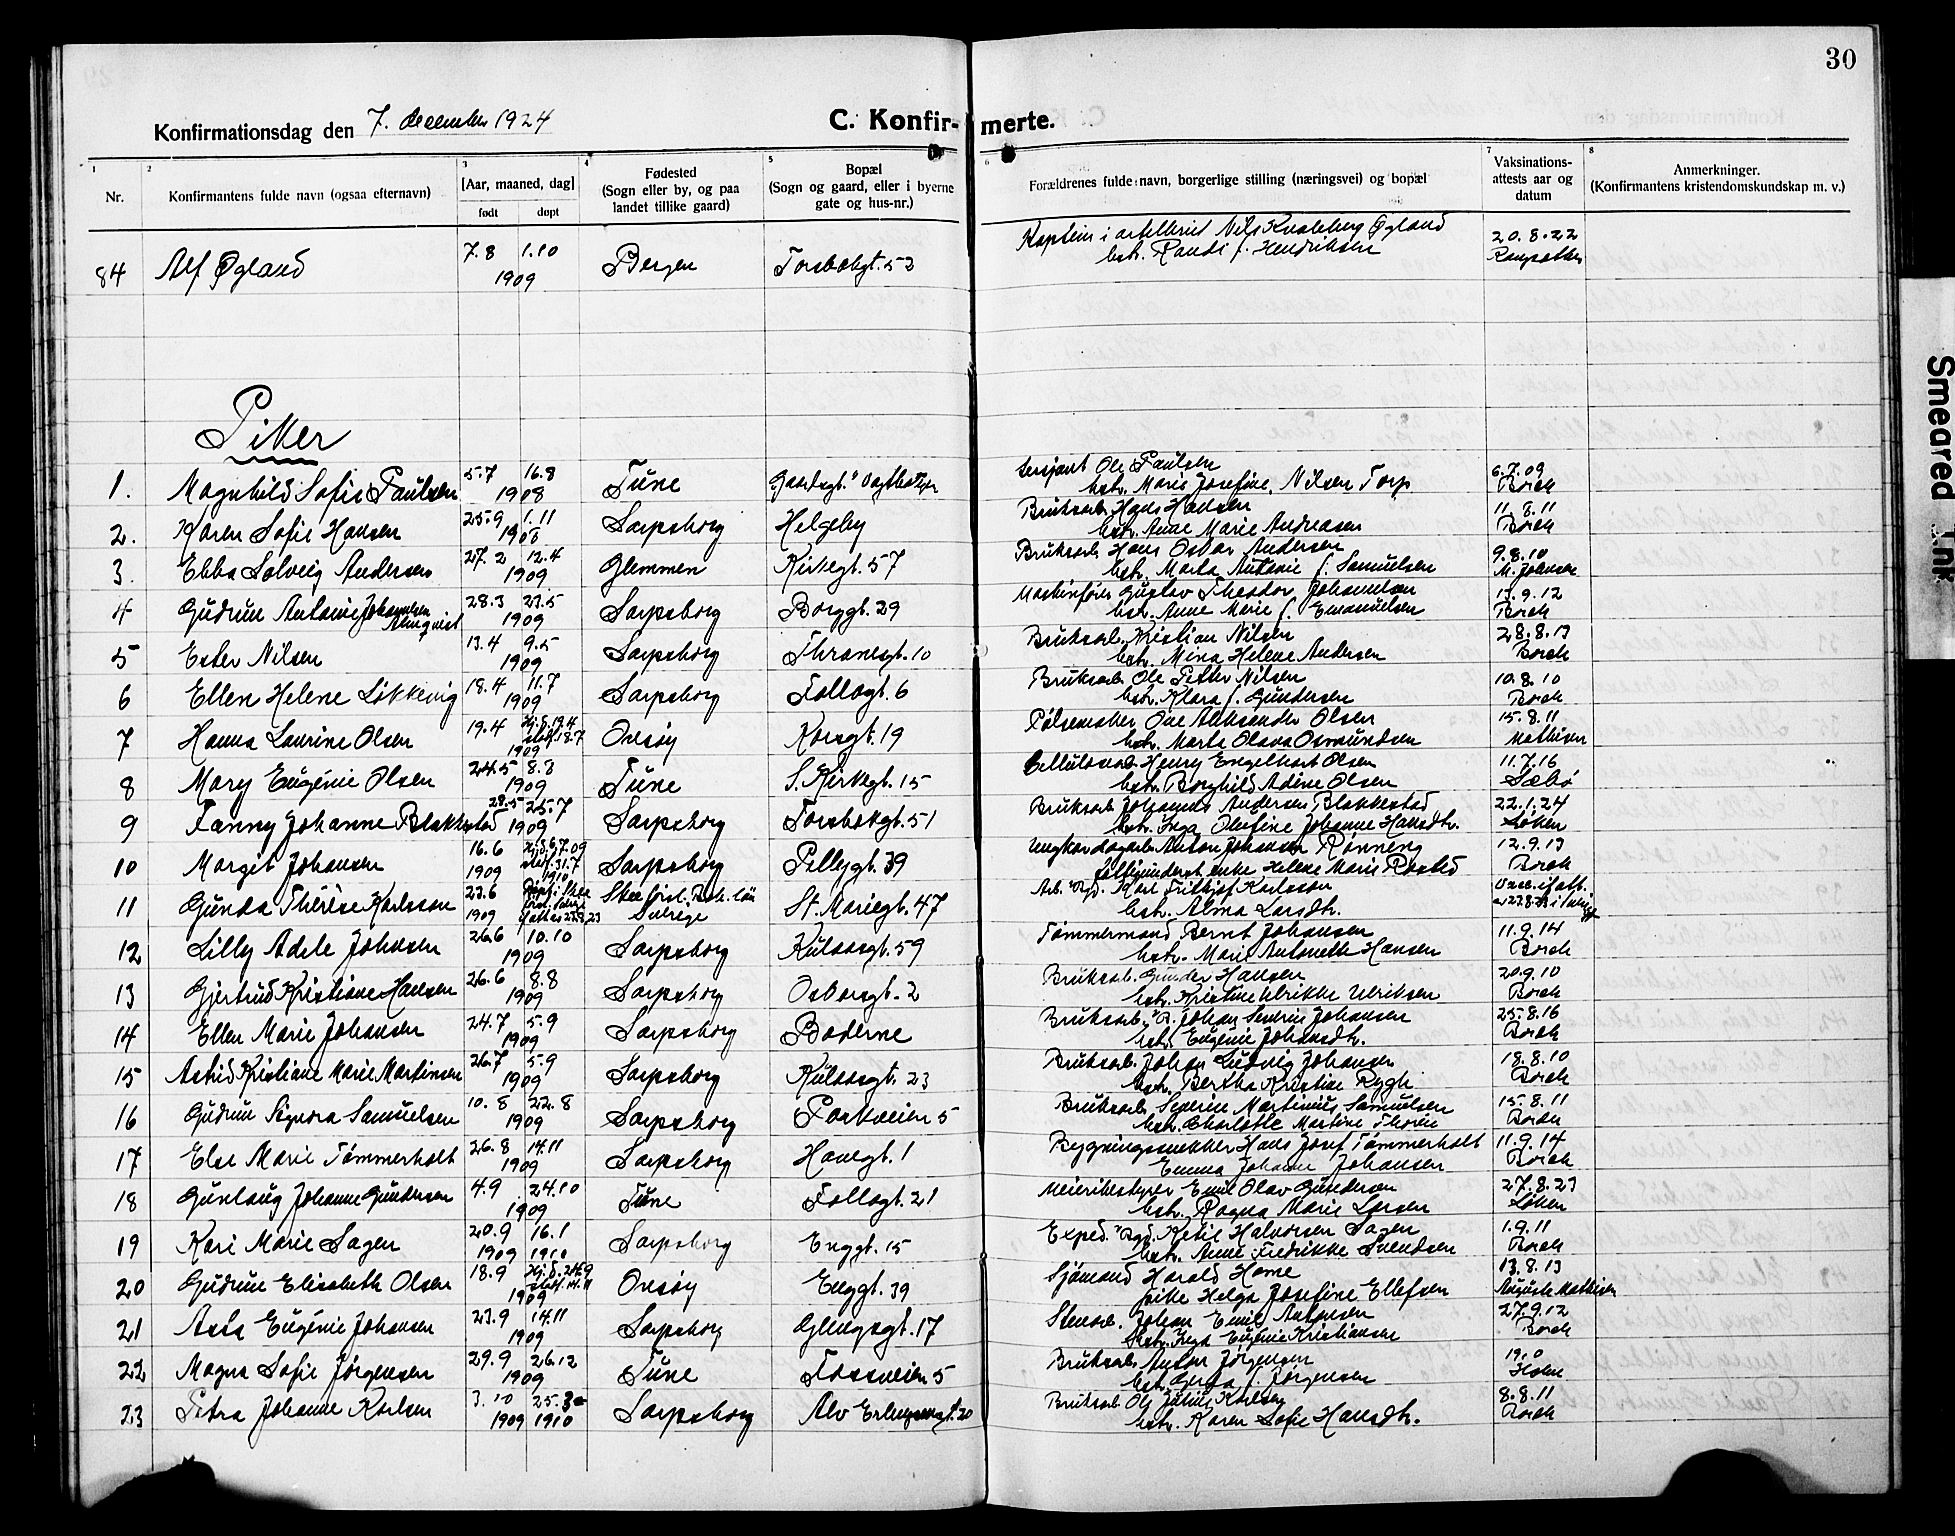 30
Konfirmationsdag den 7. december 1924
C. Konfir- merte.
1 2 3 4 5 6 7 8
Nr.
Konfirmantens fulde navn (ogsaa efternavn)
[Aar, maaned, dag]
født døpt
Fødested
(Sogn eller by, og paa
landet tillike gaard)
Bopæl
(Sogn og gaard, eller i byerne
gate og hus-nr.)
Forældrenes fulde navn, borgerlige stilling (næringsvei) og bopæl
Vaksinations-
attests aar og
datum
Anmerkninger.
(Konfirmantens kristendomskundskap m. v.)
84 Alf Øgland 7.8 1.10 1909 Bergen Torsbækgt. 52 Kaptein i artelleriet Nils Kvaleberg Øgland
hstr. Randi f. Hendriksen 20.8.22
Piker
1. Magnhild Sofie Paulsen 5.7 16.8 1908 Tune Sersjant Ole Paulsen
hstr. Marie Josefine, Nilsen Torp 6.7.09 Borch
2. Karen Sofie Hansen 25.9 1.11 Sarpsborg Helgeby Bruksarb. Hans Hansen
hstr. Anne Marie Andreasen 11.8.11 Borch
3. Ebba Solveig Andersen 27.2 12.4 1909 Glemmen Kirkegt. 57 Bruksarb. Hans Oskar Andersen
hstr. Marta Antonie f. Samuelsen 9.8.10 M. Johnsen
4 Gudrun Antonie Johannesen Almqvist 28.3 23.5 1909 Sarpsborg Borggt. 29 Maskinfører Gustav Theodor Johannesen
hstr. Anne Marie f. Emanuelsen 13.9.12 Borch
5 Ester Nilsen 13.4 9.5 1909 Sarpsborg Thranesgt. 10 Bruksarb. Kristian Nilsen
hstr. Mina Helene Andersen 28.8.13 Borch
6 Ellen Helene Løkkevig 18.4 11.7 1909 Sarpsborg Follogt. 6 Bruksarb. Ole Petter Nilsen
hstr. Klara f. Gundersen 10.8.10 Borch
7 Hanna Laurine Olsen 19.4 Hj.d. 19.4 stadf. 18.7 1909 Onsøy Korsgt. 19 Pølsemaker Ove Aleksander Olsen
hstr. Marta Olava Osmundsen 15.8.11 Mathisen
8 Mary Eugénie Olsen 24.5 8.8 1909 Tune S. Kirkegt. 15 Henry Engelhart Olsen
hstr. Borghild Adine Olsen 11.7.16 Sæbø
9 Fanny Johanne Blakkestad 28.5 25.7 1909 Sarpsborg Torsbækgt. 51 Bruksarb. Johannes Andersen Blakkestad
hstr. Inga Olufine Johanne Hansdtr. 22.1.24 Løken
10 Margit Johansen 16.6 1909 Hj.d. 6.7.09 stadf. 31.7 1910 Sarpsborg Pellygt. 39 Ungkar dagarb. Anton Johansen Rønneng
fattigunderst. enke Helene Marie Rostad 12.9.13 Borch
11 Gunda Thérèse Karlsson 23.6 1909 Skee Sverige St. Mariegt. 47 Arb. Karl Frithjof Karlsson
hstr. Alma Larsdtr.
12 Lilly Adele Johansen 26.6 10.10 1909 Sarpsborg Kulaasgt. 59 Tømmermand Bernt Johansen
hstr. Marie Antonette Hansen 11.9.14 Borch
13 Gjertrud Kristiane Hansen 26.6 8.8 1909 Sarpsborg Oskarsgt. 2 Bruksarb. Gunder Hansen
hstr. Kristine Ulrikke Ulriksen 20.9.10 Borch
14 Ellen Marie Johansen 24.7 5.9 1909 Sarpsborg Baderne Bruksarb. Johan Severin Johansen
hstr. Eugenie Johansdtr. 25.8.16 Borch
15 Astrid Kristiane Marie Martinsen 26.7 5.9 1909 Sarpsborg Kulaasgt. 23 Bruksarb. Johan Ludvig Johansen
hstr. Bertha Kristine Rygh 18.8.10 Borch
16 Gudrun Signora Samuelsen 10.8 22.8 1909 Sarpsborg Parkveien 5 Bruksarb. Severin Martinius Samuelsen
hstr. Charlotte Martine 15.8.11 Borch
17 Else Marie Tømmerholt 26.8 14.11 1909 Sarpsborg Havegt. 1 Bygningssnekker Hans Josef Tømmerholt
Emma Johanne Johansen 11.9.14 Borch
18 Gunlaug Johanne Gundersen 4.9 24.10 1909 Tune Follogt. 21 Meieribestyrer Emil Olav Gundersen
hstr. Ragna Marie Larsen 27.8.23 Løken
19 Kari Marie Sagen 20.9 1909 16.1 1910 Sarpsborg Enggt. 15 Exped. Ketil Halvorsen Sagen
hstr. Anne Fredrikke Svendsen 1.9.11 Borch
20 Gudrun Elisabeth Olsen 18.9 Hj.d. 24.9 stadf. 14.11 1909 Onsøy Enggt. 39 Sjømand Harald Horne
pike Helga Josefine Ellefsen 13.8.13 Auguste Mathisen
21 Asta Eugénie Johansen 23.9 14.11 1909 Sarpsborg Glengsgt. 17 Stenarb. Johan Emil Antonsen
hstr. Inga Eugénie Kristiansen 27.9.12 Borch
22 Magna Sofie Jørgensen 29.9 26.12 1909 Tune Fossveien 5 Bruksarb. Anton Jørgensen
hstr. Gerda f. Jørgensen Holm
23 Petra Johanne Karlsen 3.10 1909 25.3 1910 Sarpsborg Alv Erlingsensgt. 20 Bruksarb. Ole Julius Karlsen
hstr. Karen Sofie Hansdtr. 8.8.11 Borch
Smeared Ink